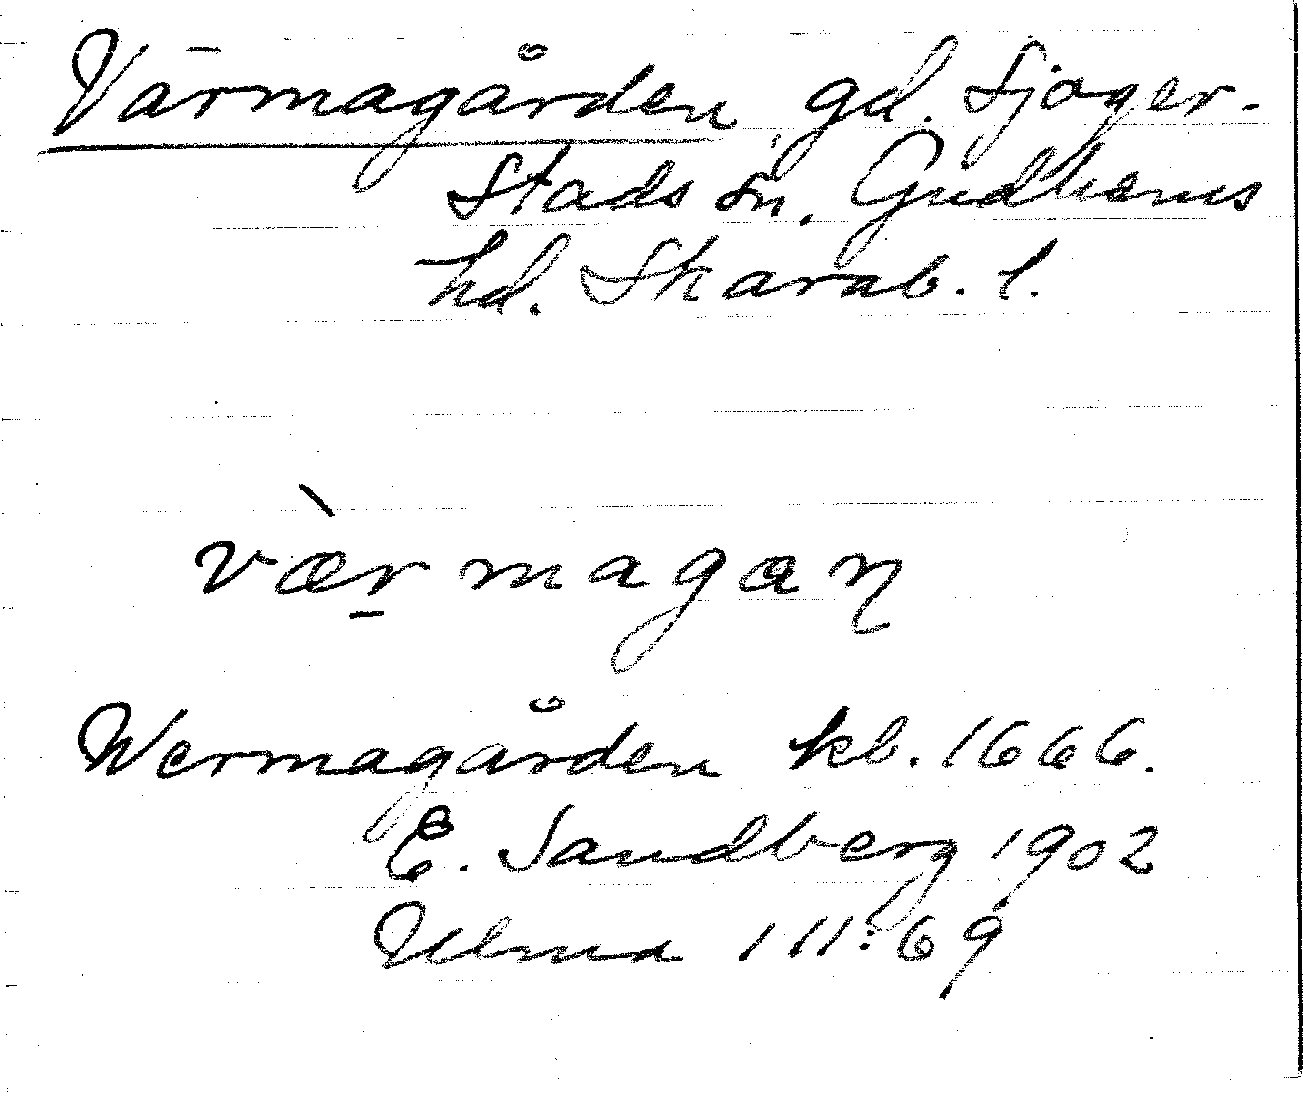 Värmagården gd. Sjöger-
stads sn. Gudhems
hd. Skarab. l.
væ̀r̲magan
Wermagården kb. 1666.
E. Sandberg 1902
Ulma 111:69